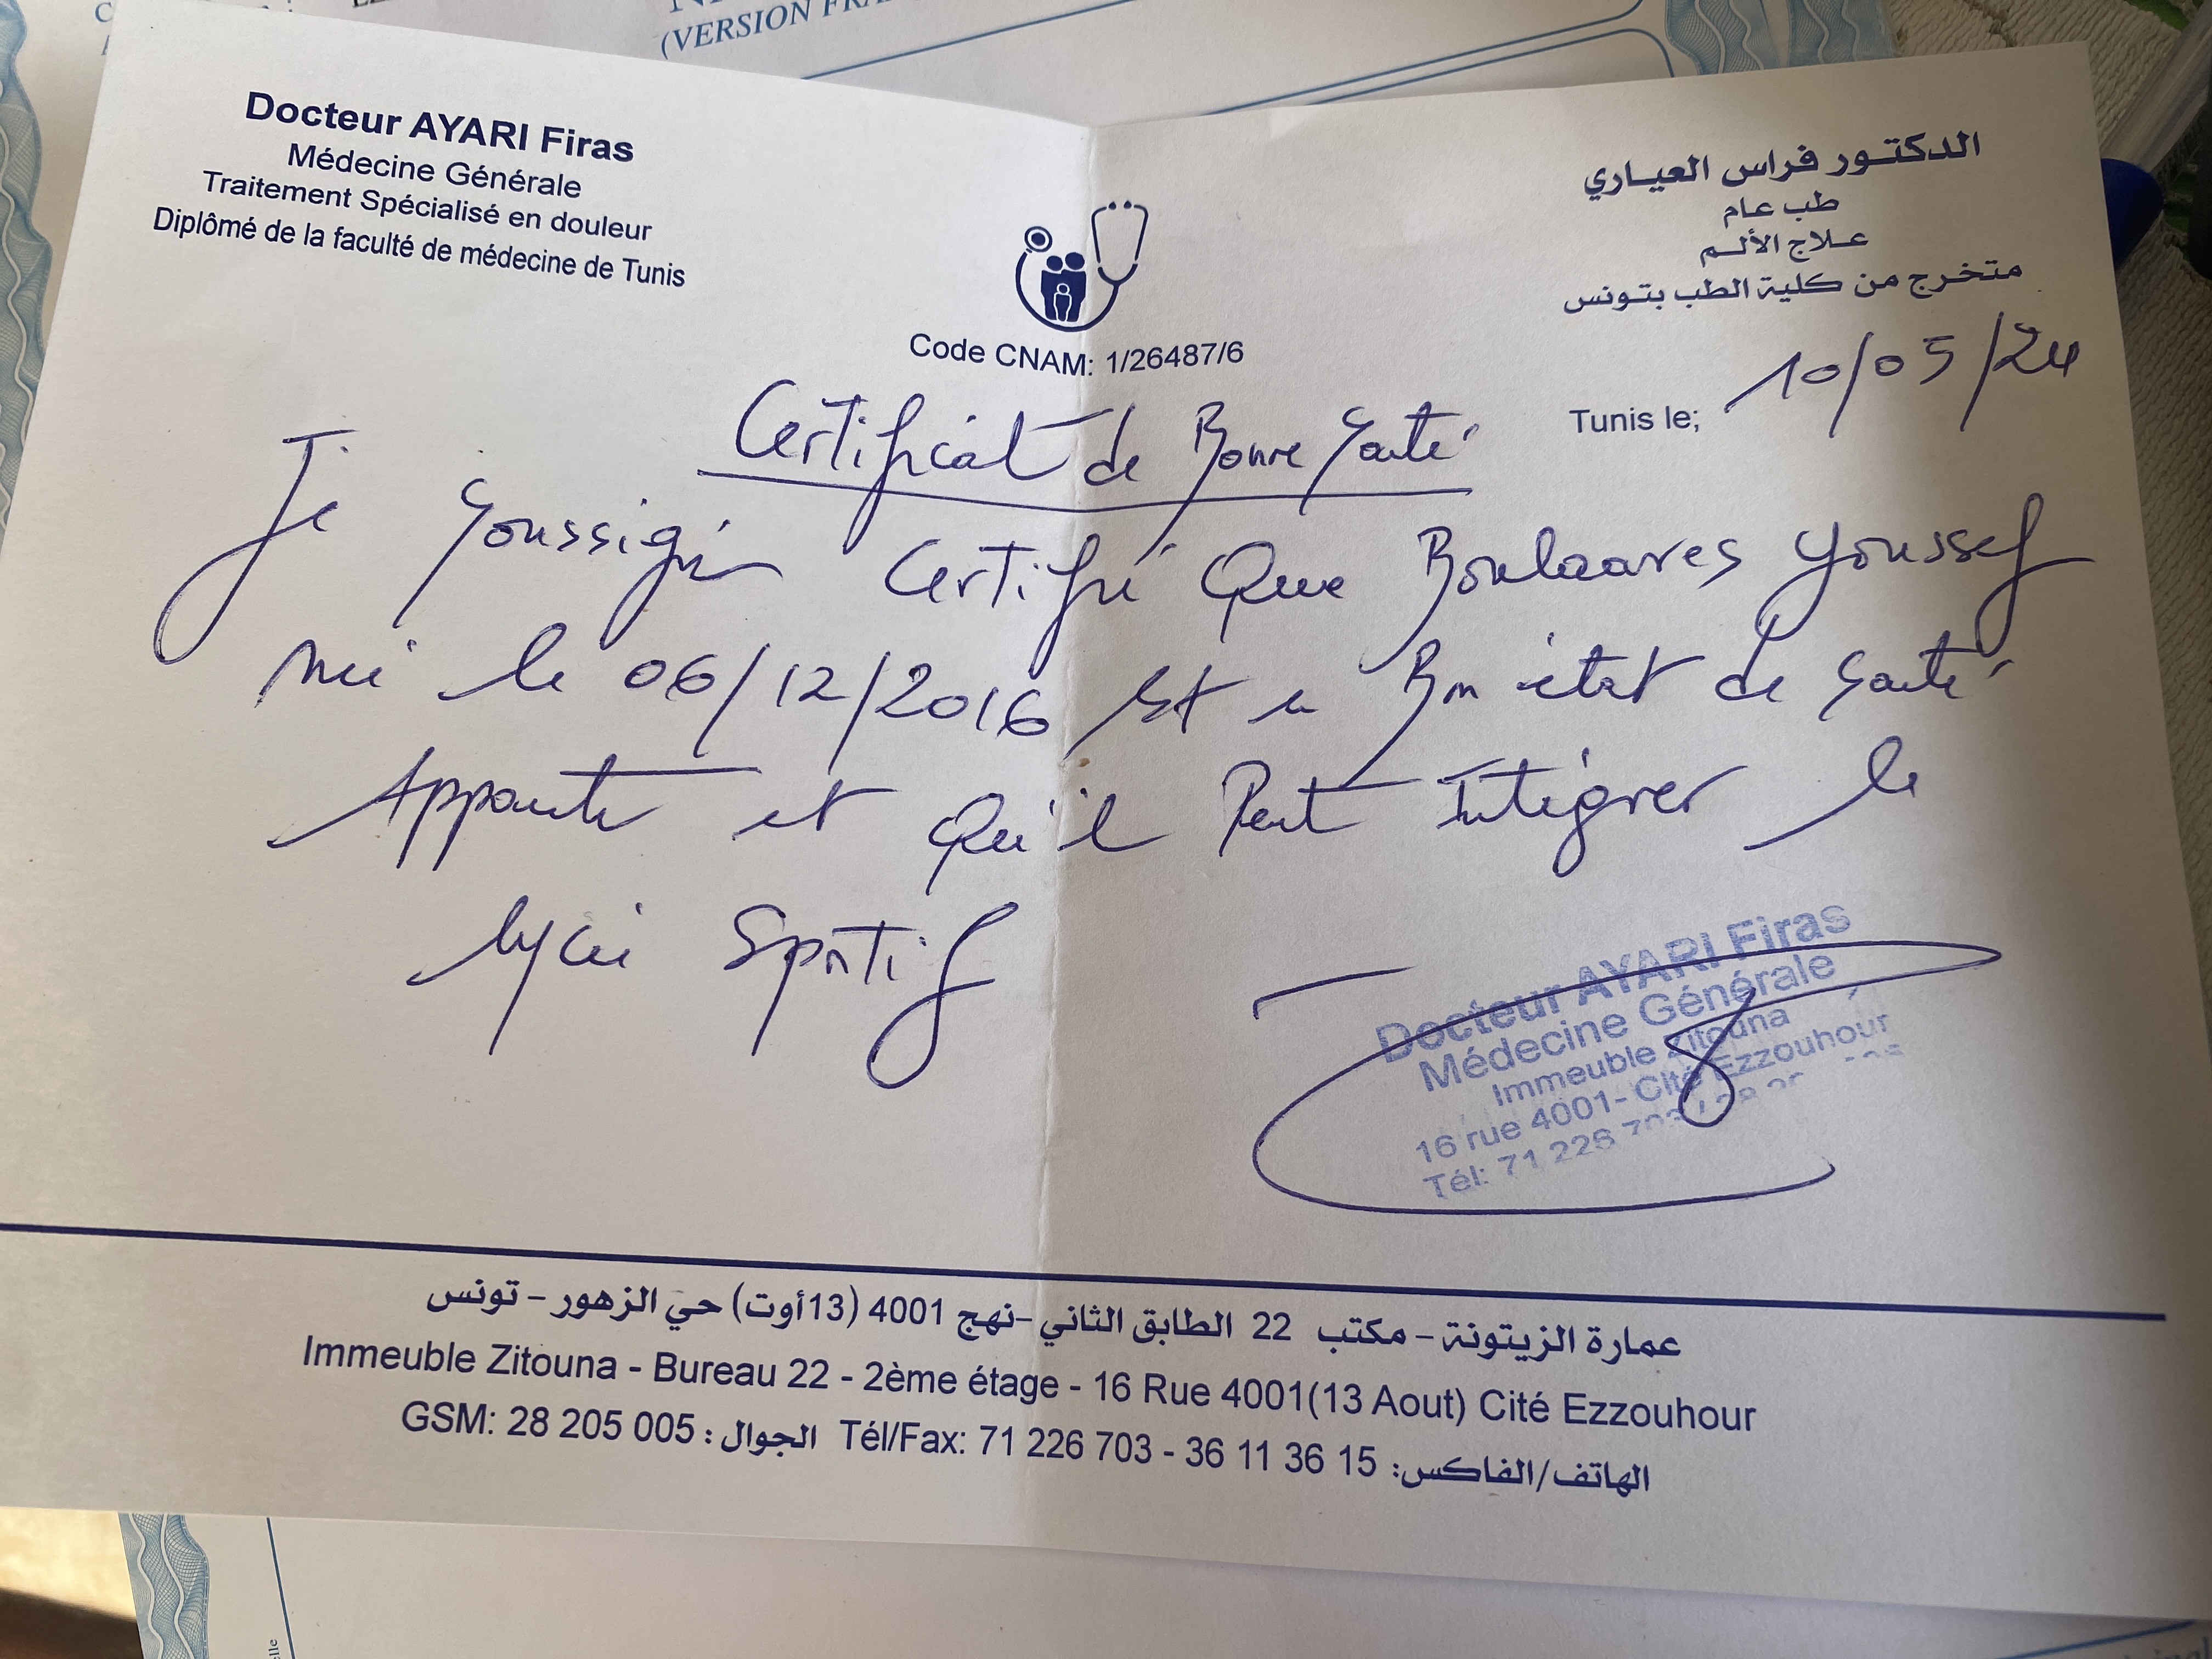 (VERSION
Docteur AYARI Firas
Médecine Générale
Traitement Spécialisé en douleur
Diplômé de la faculté de médecine de Tunis
الدكتور فراس العياري
طب عام
علاج الألم
متخرج من كلية الطب بتونس
Code CNAM: 1/26487/6
Tunis le; 10/05/24
Certificat de Bonne Santé
Je Soussigné Certifié Que Boulaares Youssef
née le 06/12/2016 Est en Bon état de Santé
Apparente et Qu'il Peut Intégrer le
lycée Sportif
Docteur AYARI Firas
Médecine Générale
Immeuble Zitouna
16 rue 4001- Cité Ezzouhour
Tél: 71 226 703 /
عمارة الزيتونة - مكتب 22 الطابق الثاني - نهج 4001 (13أوت) حي الزهور - تونس
Immeuble Zitouna - Bureau 22 - 2ème étage - 16 Rue 4001(13 Aout) Cité Ezzouhour
GSM: 28 205 005 : الجوال Tél/Fax: 71 226 703 - 36 11 36 15 :الهاتف/الفاكس